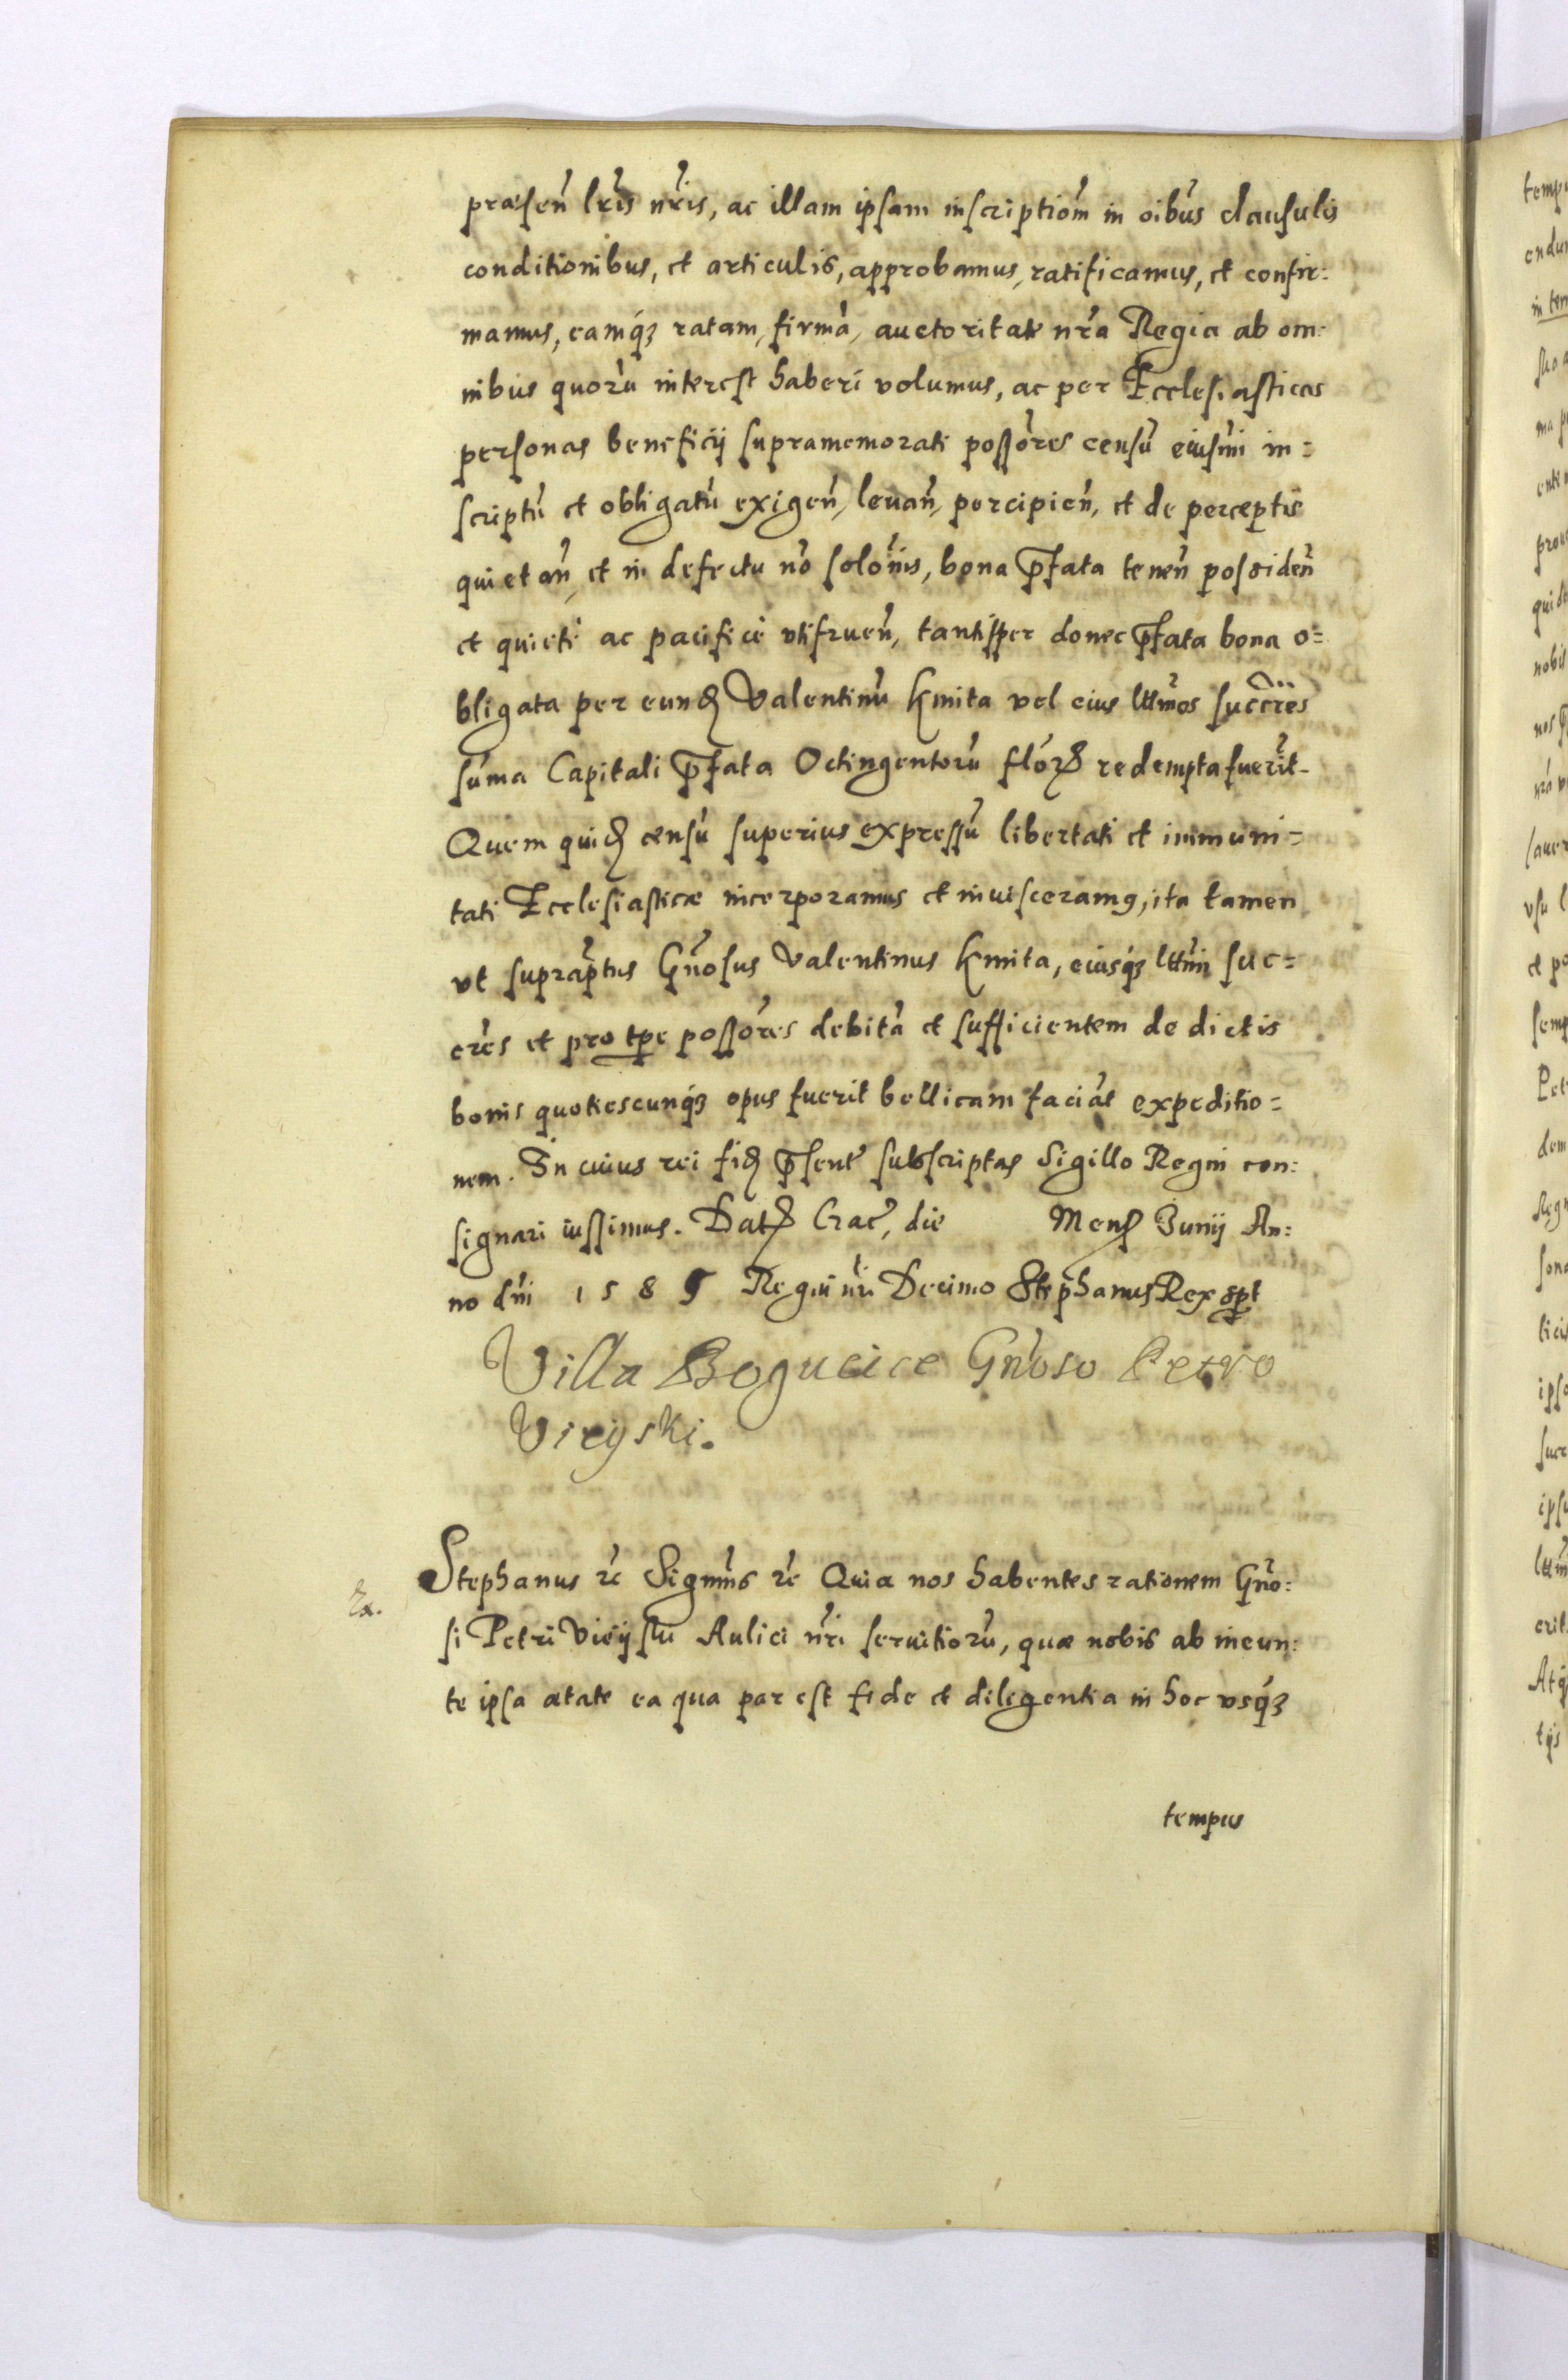 præsen̄ lr̄is nr̄is, ac illam ipsam inscriptiom̄ in oibus clausulis
conditionibus, et articulis, approbamus, ratificamus, et confir:
mamus, eamq́ꝫ ratam, firmā, auctoritate nr̄a Regia ab om:
nibus quorū interest haberi volumus, ac per Ecclesiasticas
personas beneficij supramemorati possōres censū eiusm̄i in=
scriptū et obligatū exigen̄, levan̄, percipien̄, et de perceptis
quietan̄, et in defectu nō solōnis, bona p̄fata tenen̄ possiden̄
et quietè ac pacificè vtifruen̄, tantisper donec p̄fata bona o=
bligata per eunđ Valentinū Kmita vel eius lttmos succr̄es
sum̄a Capitali p̄fata Octingentorū flor̄ redempta fuerīt.
Quem quiđ censū superius expressū libertati et immuni=
tati Ecclesiasticæ incorporamus et inuisceramꝯ, ita tamen
vt suprap̄tus Gn̄osus Valentinus Kmita, eiusq́ꝫ lttmi suc=
cr̄es et pro tp̄e possōres debitā et sufficientem de dictis
bonis quotiescunq́ꝫ opus fuerit bellicam faciāt expeditio=
nem. In cuius rei fiđ p̄sent̄ subscriptas Sigillo Regni con:
signari iussimus. Dat̄ Crac̄, die Mens̄ Junij An:
no dn̄i 1585 Regni nr̄i Decimo Stephanus Rex spt
Villa Bogucice Gn̄oso Petro
Vieyski.
Stephanus rc̄ Signm̄s rc̄ Quia nos habentes rationem Gn̄o:
si Petri Vieijski Aulici nr̄i seruitiorū, quæ nobis ab ineun:
te ipsa ætate ea qua par est fide et diligentia in hoc vsq́ꝫ
Ex.
tempus